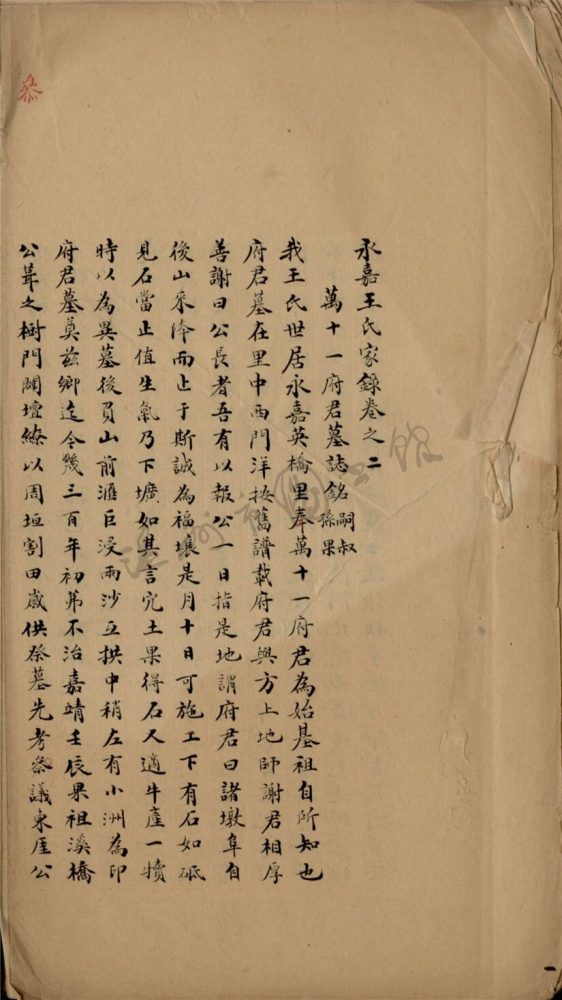 永嘉王氏家錄卷之二
萬十一府君墓誌銘 嗣叔孫果
我王氏世居永嘉英橋里奉萬十一府君為始基祖自所知也
府君墓在里中西門洋按舊譜載府君與方上地師謝君相厚
善謝曰公長者吾有以報公一日指是地謂府君曰諸墩阜自
後山來洚而止于斯誠為福壤是月十日可施工下有石如砥
見石當止值生氣乃下壙如其言穴土果得石又適牛產一犢
時以為異墓後負山前滙巨浸兩沙互拱中稍左有小洲為印
府君墓奠茲鄉迄今幾三百年初弟不治嘉靖壬辰果祖溪橋
公葺之樹門闢壇繚以周垣割田歲供祭墓先考叅議東厓公
叅